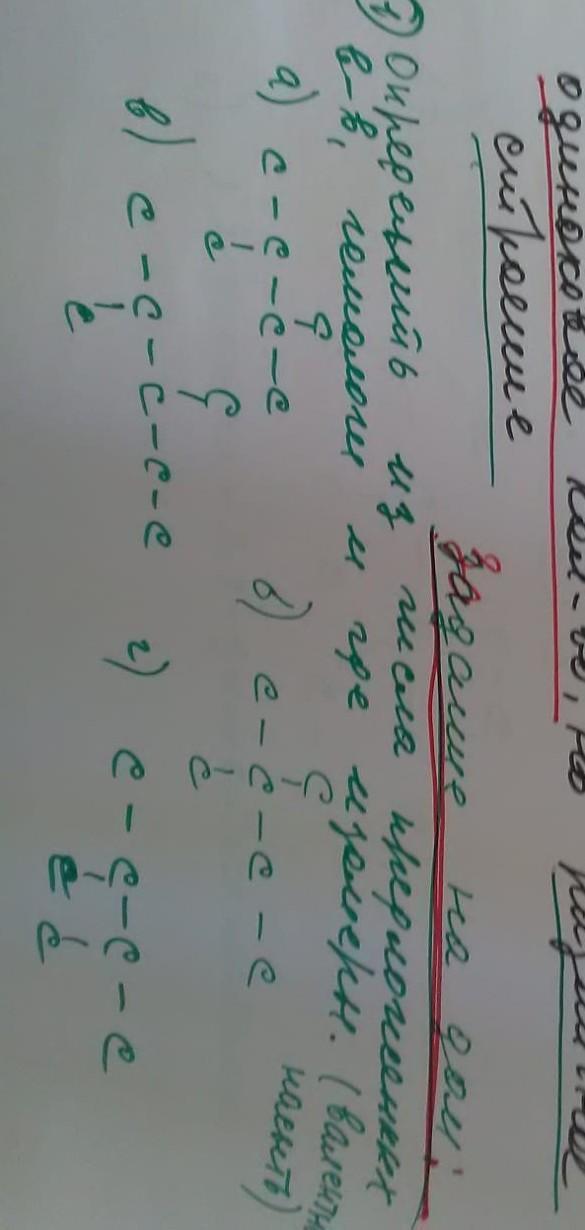 одинаковое кол-во, но различное
строение
Задание на дом:
1) Определить из числа предложенных
в-в, гомологи и где изомеры. (валентн
насыть)
а) C - C - C - C
C C
б) C - C - C - C
C C
в) C - C - C - C - C
C C
г) C - C - C - C
C C